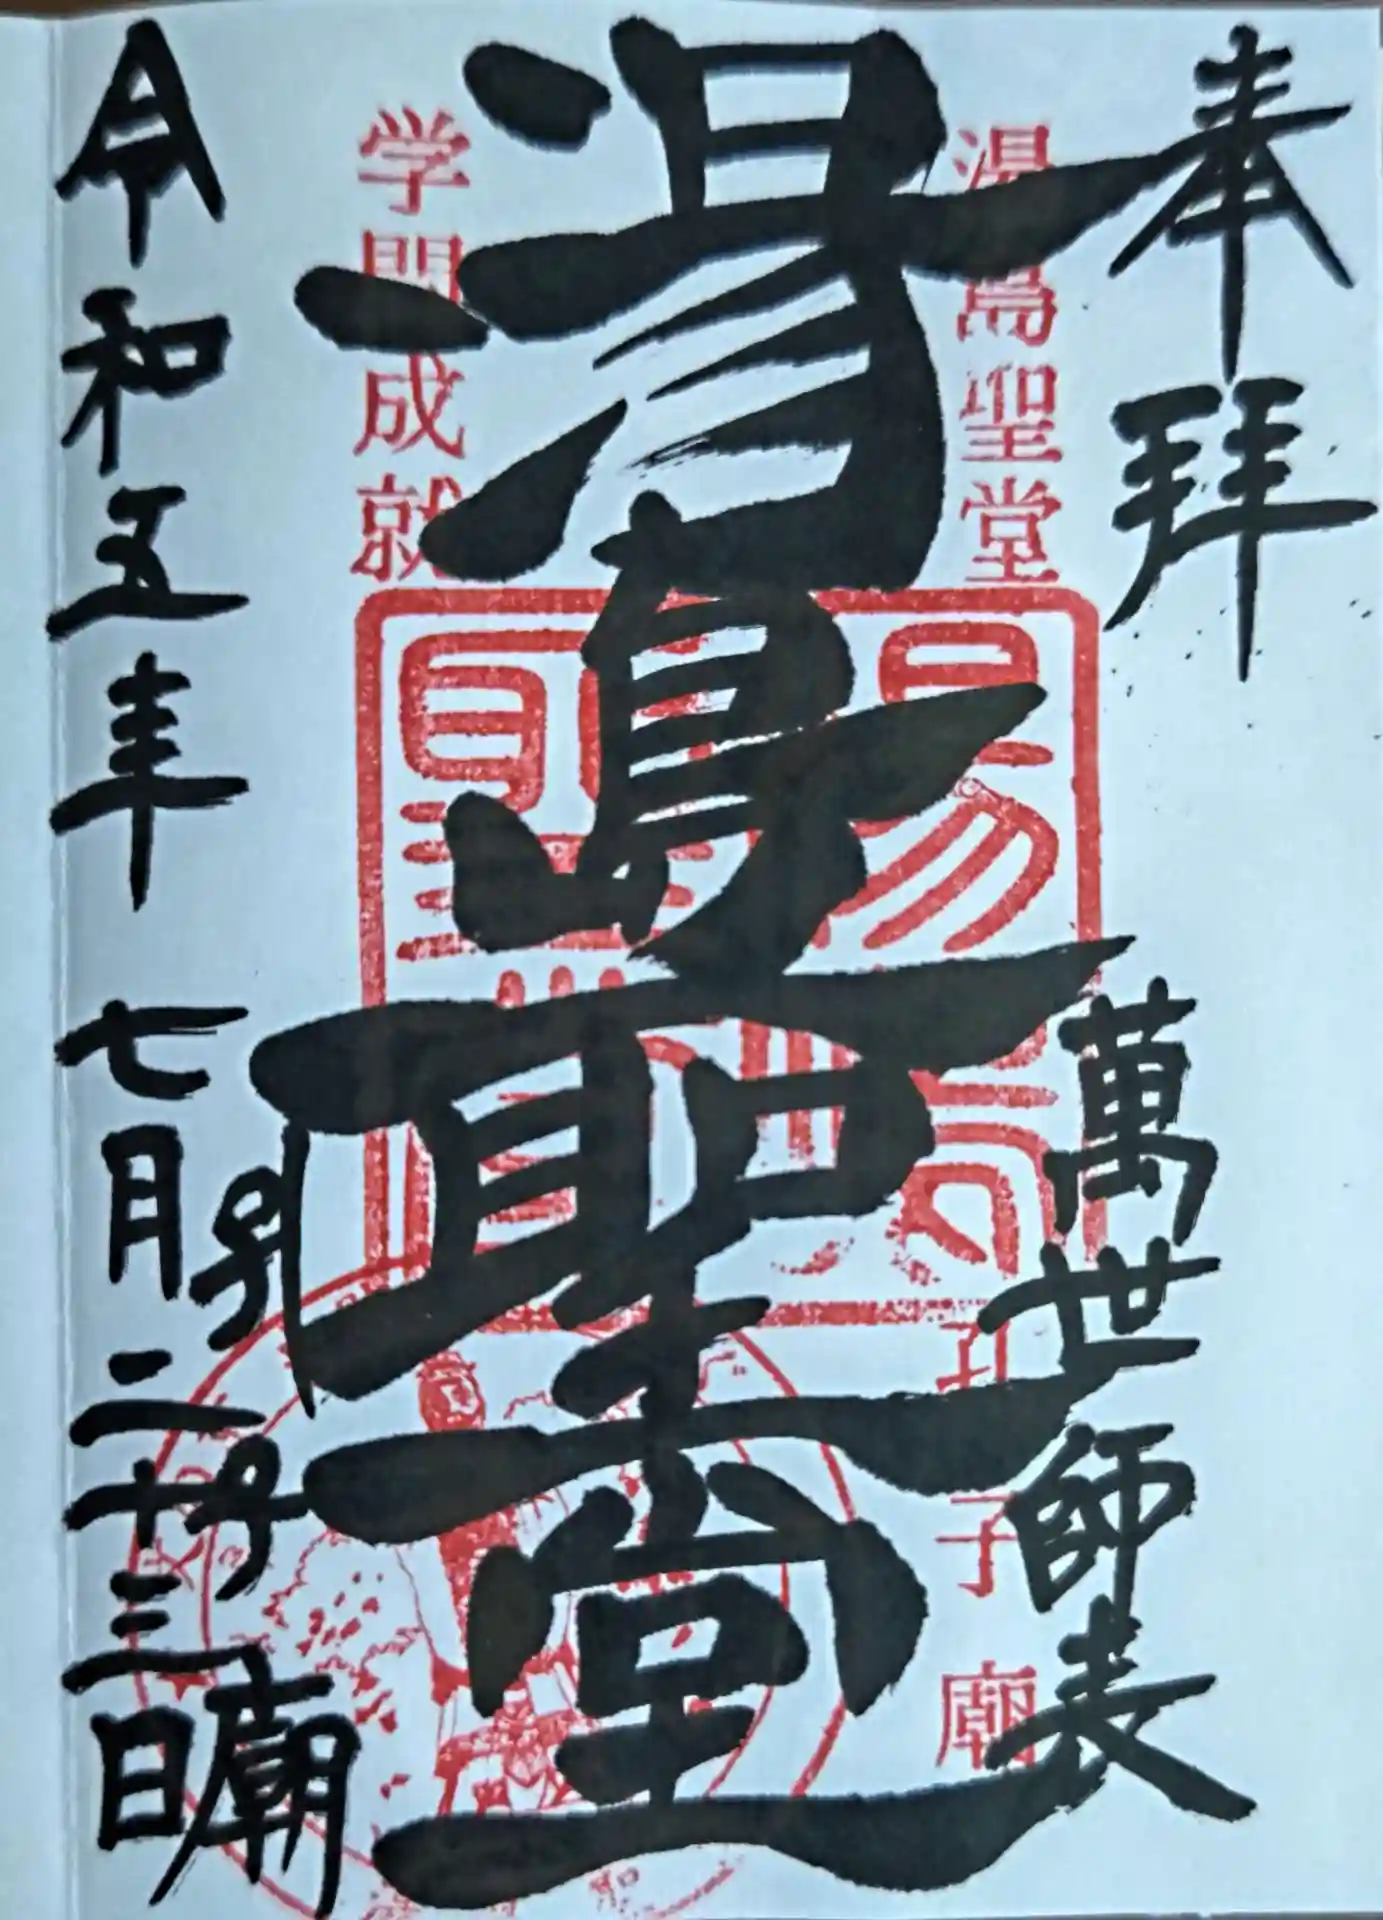 奉拝
萬世師表
湯島聖堂
孔子廟
湯島聖堂
学問成就
孔子廟
令和五年 七月二十三日